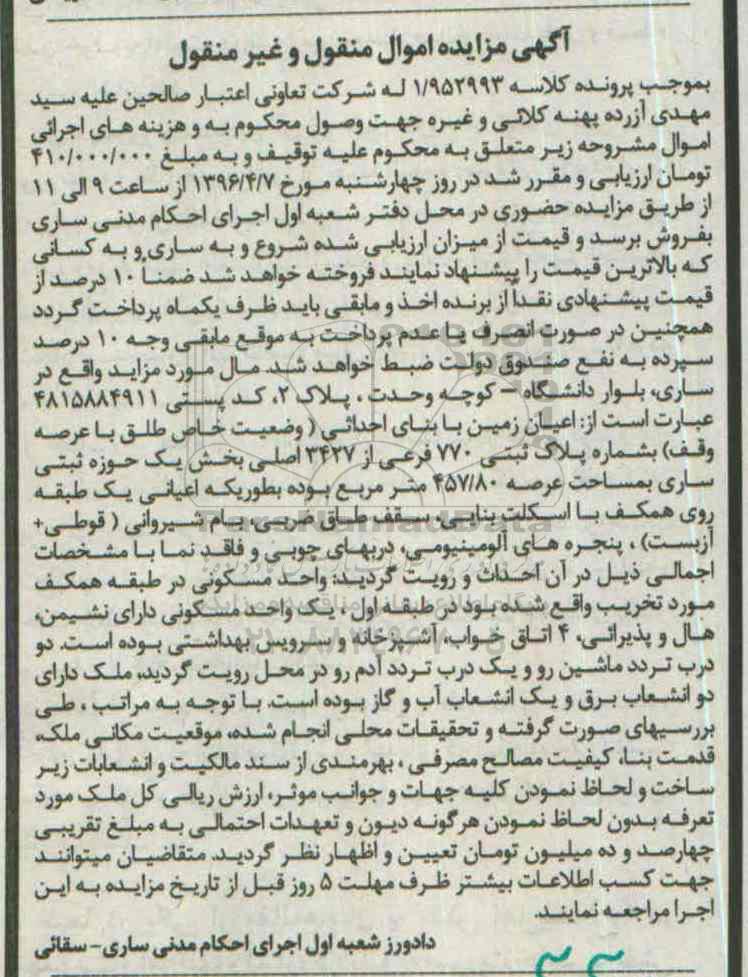 آگهی مزایده اموال منقول و غیر منقول
بموجب پرونده کلاسه ۱/۹۵۲۹۹۳ له شرکت تعاونی اعتبار صالحین علیه سید
مهدی آزرده پهنه کلائی و غیره جهت وصول محکوم به و هزینه های اجرائی
اموال مشروحه زیر متعلق به محکوم علیه توقیف و به مبلغ ۴۱۰/۰۰۰/۰۰۰
تومان ارزیابی و مقرر شد در روز چهارشنبه مورخ ۱۳۹۶/۴/۷ از ساعت ۹ الی ۱۱
از طریق مزایده حضوری در محل دفتر شعبه اول اجرای احکام مدنی ساری
بفروش برسد و قیمت از میزان ارزیابی شده شروع و به ساری و به کسانی
که بالاترین قیمت را پیشنهاد نمایند فروخته خواهد شد ضمناً ۱۰ درصد از
قیمت پیشنهادی نقداً از برنده اخذ و مابقی باید ظرف یکماه پرداخت گردد
همچنین در صورت انصرف یا عدم پرداخت به موقع مابقی وجه ۱۰ درصد
سپرده به نفع صندوق دولت ضبط خواهد شد. مال مورد مزاید واقع در
ساری، بلوار دانشگاه – کوچه وحدت ، پلاک ۲، کد پستی ۴۸۱۵۸۸۴۹۱۱
عبارت است از: اعیان زمین با بنای احداثی ( وضعیت خاص طلق با عرصه
وقف) بشماره پلاک ثبتی ۷۷۰ فرعی از ۳۴۳۷ اصلی بخش یک حوزه ثبتی
ساری بمساحت عرصه ۴۵۷/۸۰ متر مربع بوده بطوریکه اعیانی یک طبقه
روی همکف با اسکلت بنایی، سقف طاق ضربی، بام شیروانی ( قوطی+
آزبست) ، پنجره های آلومینیومی، دربهای چوبی و فاقد نما با مشخصات
اجمالی ذیل در آن احداث و رویت گردید: واحد مسکونی در طبقه همکف
مورد تخریب واقع شده بود در طبقه اول ، یک واحد مسکونی دارای نشیمن،
هال و پذیرائی، ۴ اتاق خواب، آشپزخانه و سرویس بهداشتی بوده است. دو
درب تردد ماشین رو و یک درب تردد آدم رو در محل رویت گردید، ملک دارای
دو انشعاب برق و یک انشعاب آب و گاز بوده است. با توجه به مراتب ، طی
بررسیهای صورت گرفته و تحقیقات محلی انجام شده، موقعیت مکانی ملک،
قدمت بنا، کیفیت مصالح مصرفی ، بهرمندی از سند مالکیت و انشعابات زیر
ساخت و لحاظ نمودن کلیه جهات و جوانب موثر، ارزش ریالی کل ملک مورد
تعرفه بدون لحاظ نمودن هرگونه دیون و تعهدات احتمالی به مبلغ تقریبی
چهارصد و ده میلیون تومان تعیین و اظهار نظر گردید. متقاضیان میتوانند
جهت کسب اطلاعات بیشتر ظرف مهلت ۵ روز قبل از تاریخ مزایده به این
اجرا مراجعه نمایند.
دادورز شعبه اول اجرای احکام مدنی ساری- سقائی